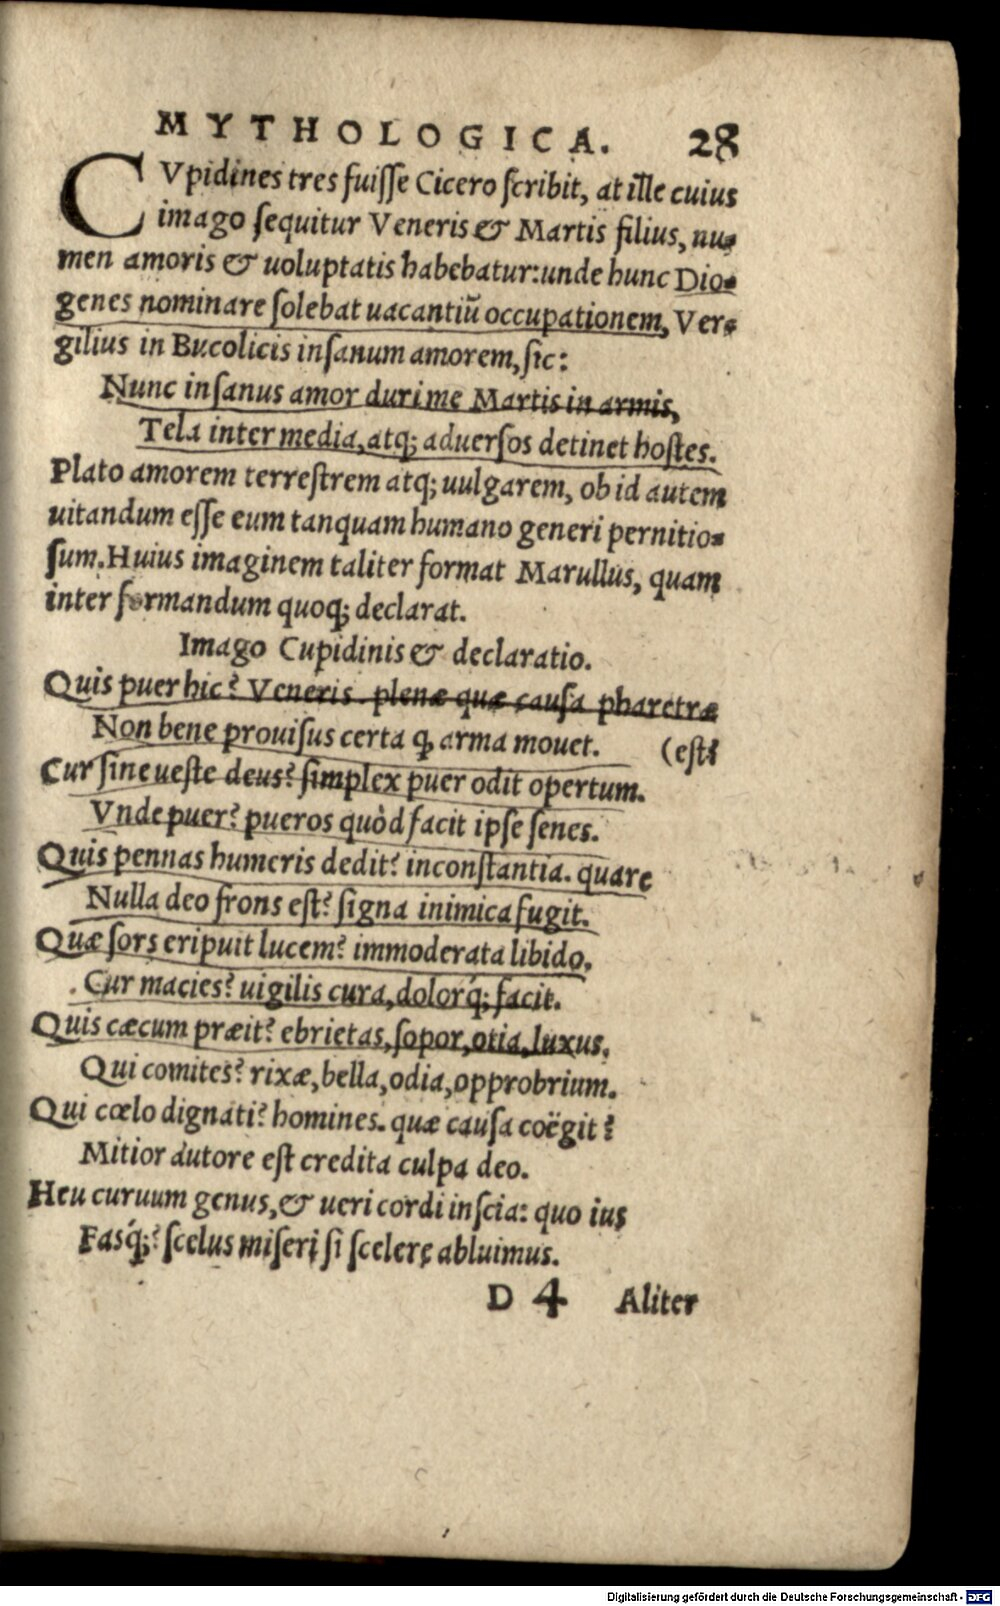 MYTHOLOGICA. 28
CVpidines tres fuisse Cicero scribit, at ille cuius
imago sequitur Veneris & Martis filius, nu-
men amoris & uoluptatis habebatur: unde hunc Dio-
genes nominare solebat uacantiū occupationem, Ver-
gilius in Bucolicis insanum amorem, sic:
Nunc insanus amor duri me Martis in armis,
Tela inter media, atq; aduersos detinet hostes.
Plato amorem terrestrem atq; uulgarem, ob id autem
uitandum esse eum tanquam humano generi pernitio-
sum. Huius imaginem taliter format Marullus, quam
inter formandum quoq; declarat.
Imago Cupidinis & declaratio.
Quis puer hic? Veneris. plenæ quæ causa pharetræ
Non bene prouisus certa q, arma mouet. (est?
Cur sine ueste deus? simplex puer odit opertum.
Vnde puer? pueros quòd facit ipse senes.
Quis pennas humeris dedit? inconstantia. quare
Nulla deo frons est? signa inimica fugit.
Quæ sors eripuit lucem? immoderata libido.
Cur macies? uigilis cura, dolorq́; facit.
Quis cæcum præit? ebrietas, sopor, otia, luxus.
Qui comites? rixæ, bella, odia, opprobrium.
Qui cœlo dignati? homines. quæ causa coëgit?
Mitior autore est credita culpa deo.
Heu curuum genus, & ueri cordi inscia: quo ius
Fasq́;? scelus miseri si scelere abluimus.
D 4 Aliter
Digitalisierung gefördert durch die Deutsche Forschungsgemeinschaft - DFG